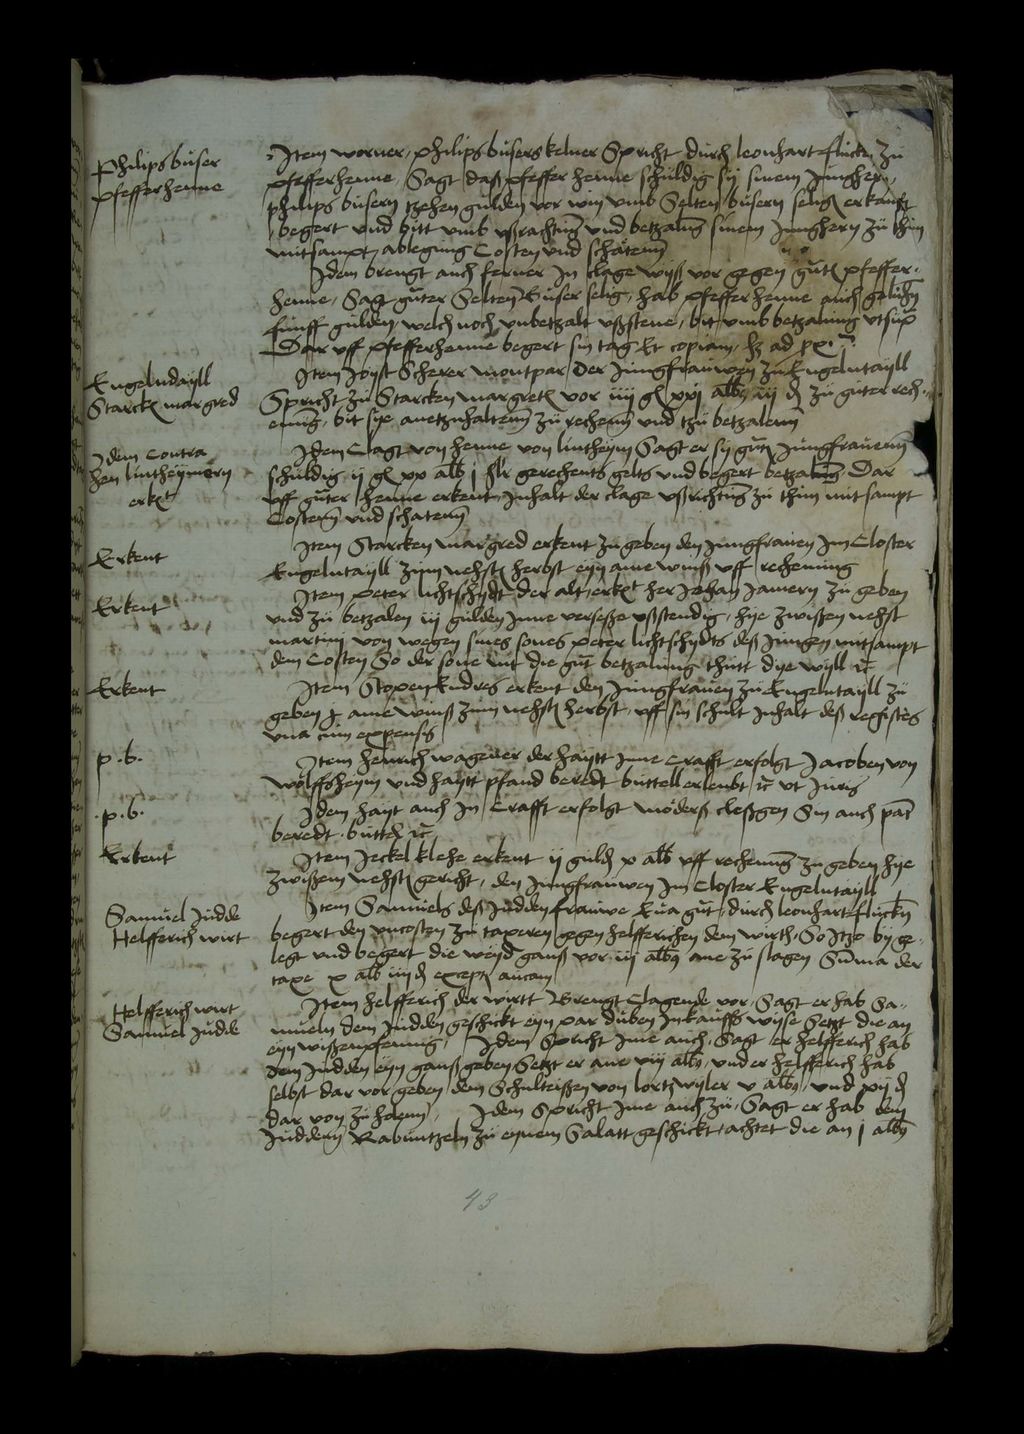 Philips büser
pfefferhenne
Item worner, philips büsers kelner Spricht dürch leonhart flücken zü
pfefferhenne, Sagt daß pfeffer henne schüldig sij sinem Jünghern
philips büsern tzehen gulden vor win vmb Selten büsern selig erkaufft
begert vnd bitt vmb vßrachtüng vnd betzalüng sinem Junghern zü thün
mitsampt ableging Costen vnd schatenn
Idem brengt auch ferner In clage wyß vor gegen gutz pfeffer-
henne, Sagt güter Selten büser selig, hab pfeffer henne auch gelühen
fünff gulden, welch noch vnbetzalt vßstene, bit vmb betzalung vtsup
Dar vff pfefferhenne begert sin tag Et copiam, ad
Engelndayll
Starcken margred
Item Joyst Scherer montpar der Jüngfrauwen zü Engelntayll
Spricht zu Starcken margreten vor iiij gl xxj albus iij d zü güter rech-
enüng, bit sye anetzuhaltenn zü rechenn vnd tzü betzalenn
Idem Contra
hen lintheymern
erkent
Idem Clagt von henne von lintheym Sagt er sij gutz Jungfrauenn
schüldig ij gl xx alb j hlr gerechents gelts vnd begert betzalüng Dar
vff güter henne erkent Inhalt der clage vßrichtüng zü thün mit sampt
Costenn vnd schatenn
Erkent
Item Starcken margred erkent zü geben den Jungfrauen Im Closter
Engelntayll züm nehsten herbst eyn ame winß vff rechenung
Erkent
Item peter lichtschydt der alt erkent her Johan Jamern zü geben
vnd zü betzalen iij gülden Jme verseße vßstendig, hye zwißen nehst
martini von wegen sines sones peter lichtschydts deß Jüngen mitsampt
dem Costen So der sone nit die gut betzalung thütt dye wyll
Erkent
Item Stopen Endres erkent den Jüngfrauen zü Engelntayll zü
geben j ame winß züm nehsten herbst, vff sin schült Inhalt deß registers
vna cum expensis
p. b.
Item henrich wagener der haytt Jnne Crafft erfolgt Jacoben von
wolffsheym vnd haytt pfand beredt büttell erleübt vt Juris
p. b.
Idem hayt auch In Crafft erfolgt moderß cleßgen Sin auch
beredt büttel
Erkent
Item Jeckel klehe erkent ij guld x alb vff rechenüng zü geben hye
zwißem nehsten gericht, den Jüngfrauwen Im Closter Engelntayll
Samuel Judde
Helfferich wirt
Item Samüels deß Jüdden frauwe Eüa gut dürch leonhart flücken
begert den vncosten zü taxeren gegen helfferichen dem wirth, So Itzo bij ge-
legt vnd begert die weyd ganß vor iij albus ane zü slagen Summa der
taxe x alb iiij d
Helfferich wirt
Samuel Judde
Item helfferich der wirtt Brengt Clagende vor, Sagt er hab Sa-
mueln dem Jüdden geschickt eyn par duben Inkauffs wyse Setzt die an
eyn wißenpfennig, Idem Spricht Jme auch, Sagt er helfferich hab
dem Jüdden eyn ganß geben Setzt er ane viij albus, vnd er helfferich hab
selbst dar vor geben, dem Schulteißen von lortzwyler v albus, vnd xij d
dar von zü hoenn, Idem Spricht Jme auch zü, Sagt er hab dem
Jüdden Rabüntzeln zü eynem Salatt geschickt, achtet die an j albus
43